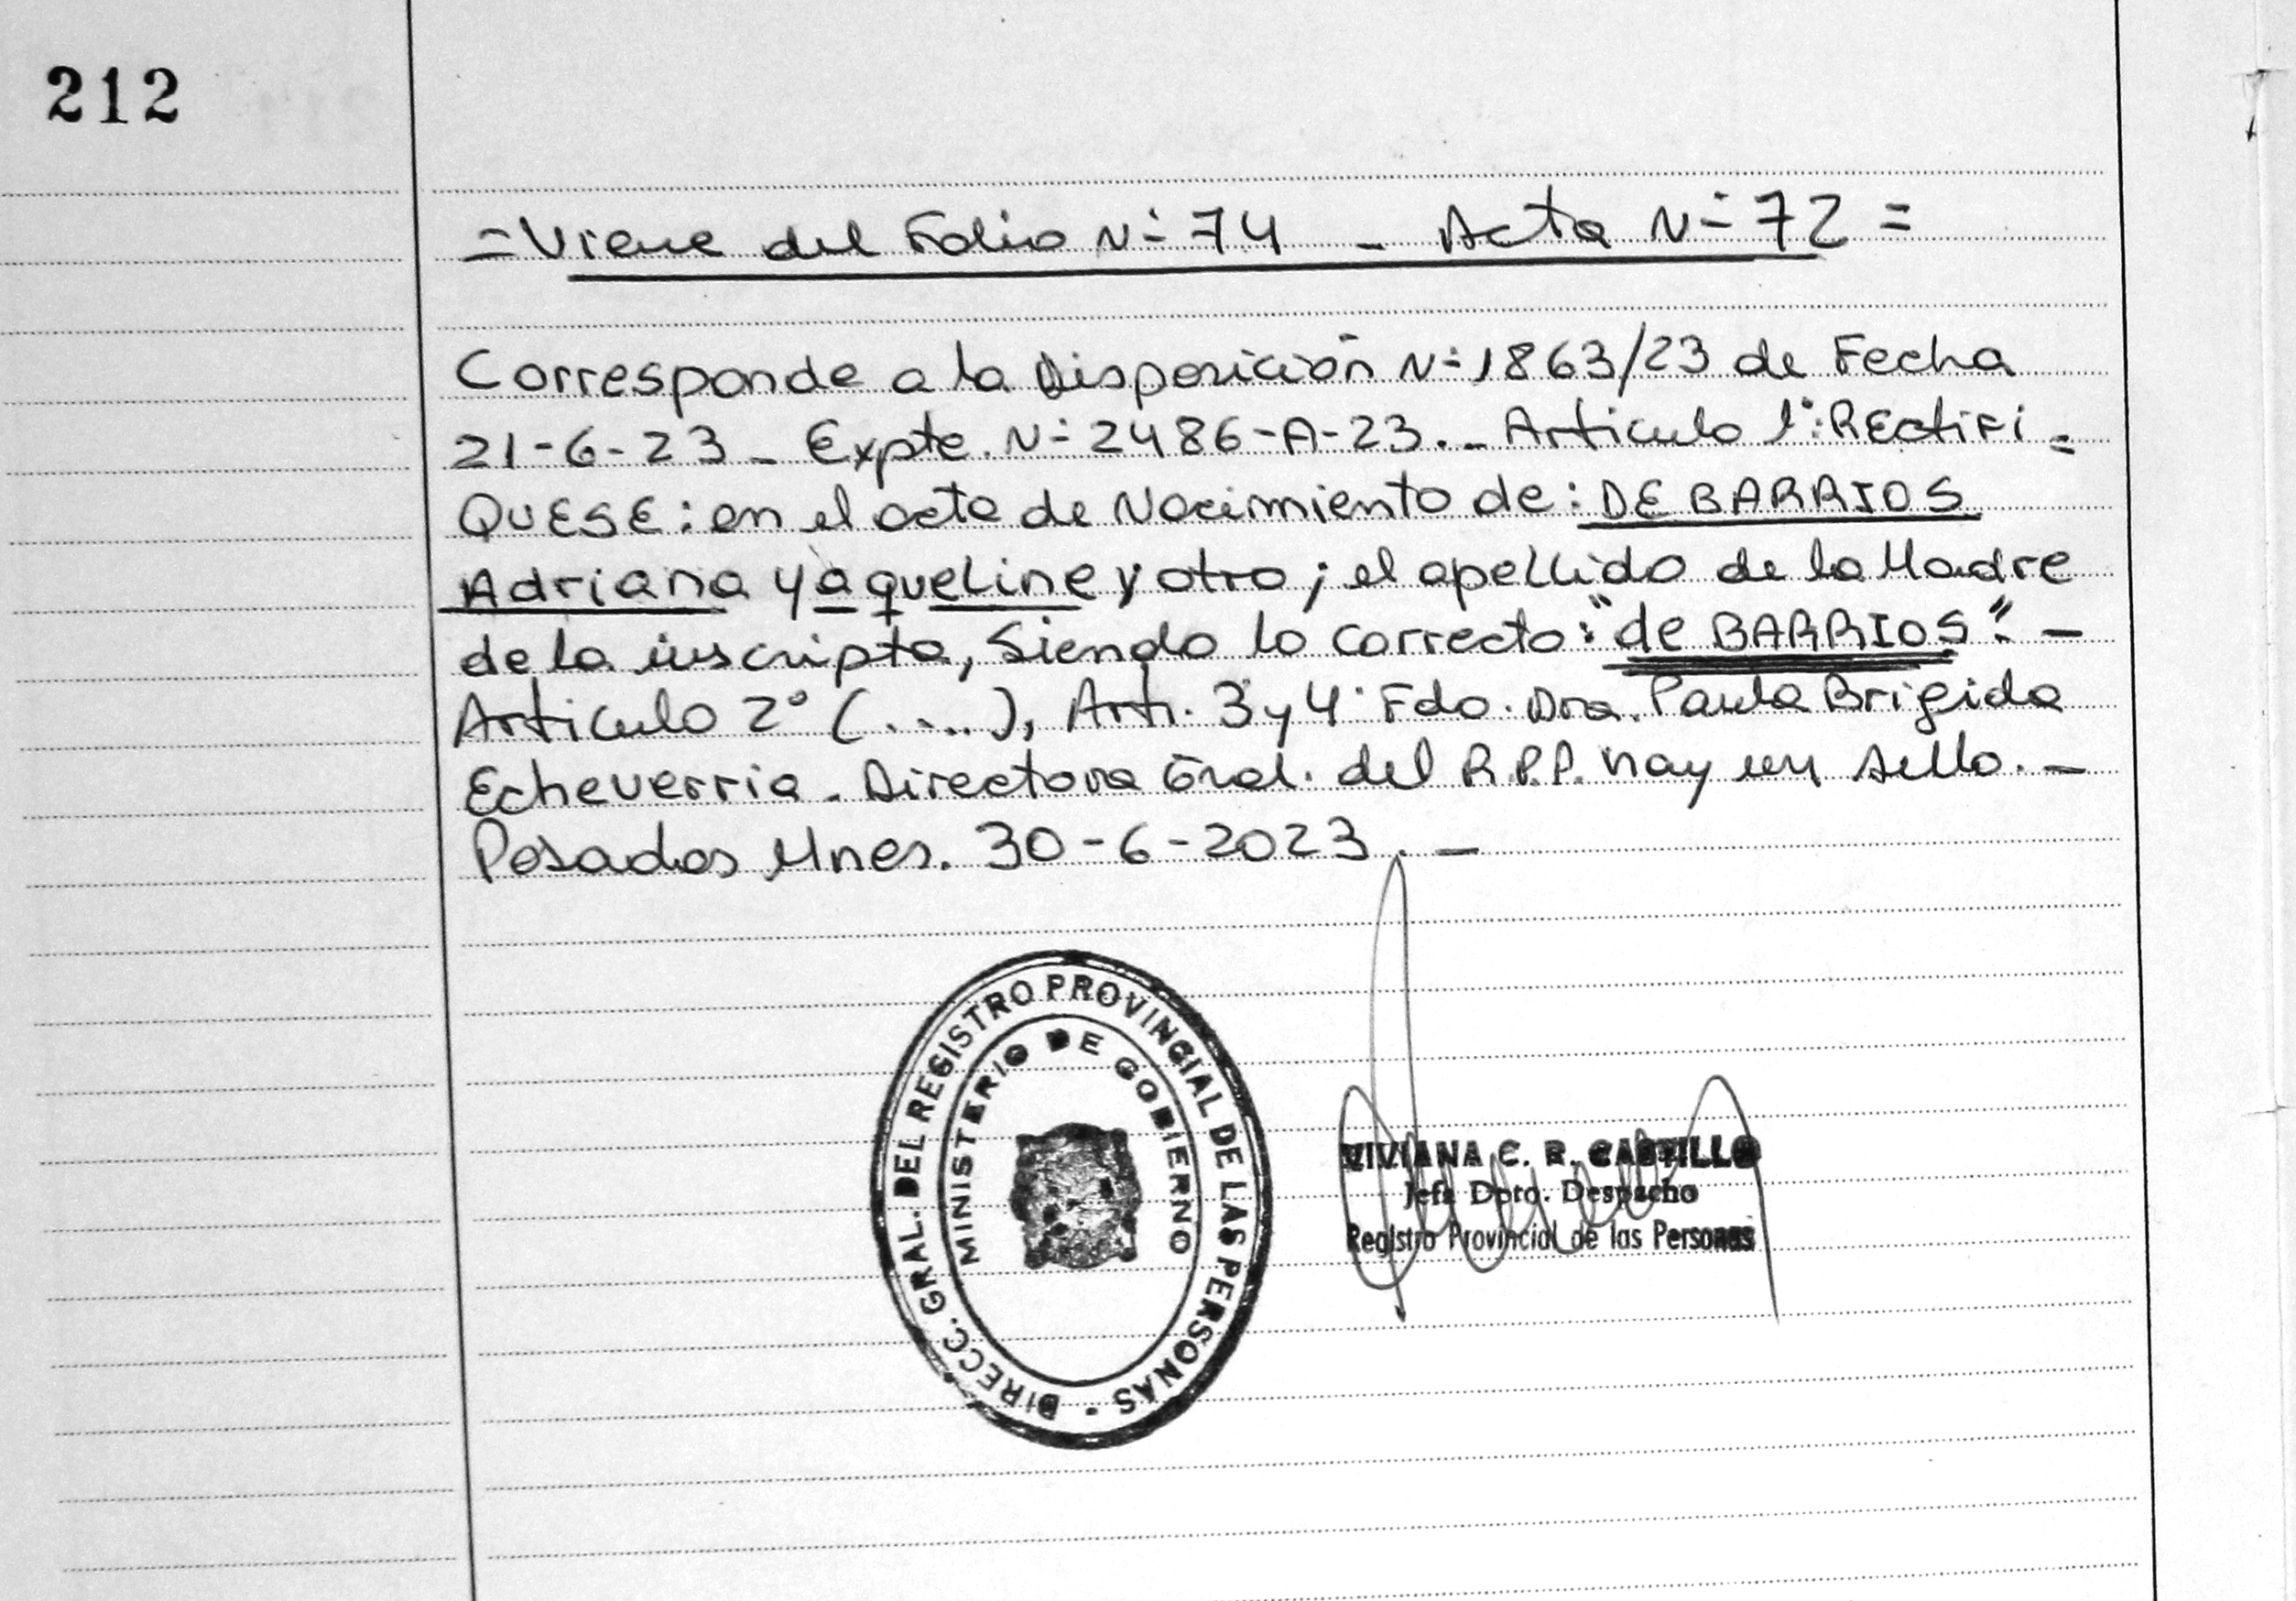 212
= Viene del Folio Nº 74 - Acta Nº 72 =
Corresponde a la Disposición Nº 1863/23 de Fecha
21-6-23 - Expte. Nº 2486-A-23.- Articulo 1º: RECtiFi=
QUESE: en el acta de Nacimiento de: DE BARRIOS
Adriana Yaqueline y otro; el apellido de la Madre
de la inscripta, Siendo lo correcto: "de BARRIOS". -
Articulo 2º (....), Art. 3 y 4º Fdo. Dra. Paula Brigida
Echeverria. Directora Gral. del R.P.P. hay un sello. -
Posadas Mnes. 30-6-2023. -
DIRECC. GRAL. DEL REGISTRO PROVINCIAL DE LAS PERSONAS -
MINISTERIO DE GOBIERNO
VIVIANA C. R. CASTILLO
Jefa Dpto. Despacho
Registro Provincial de las Personas